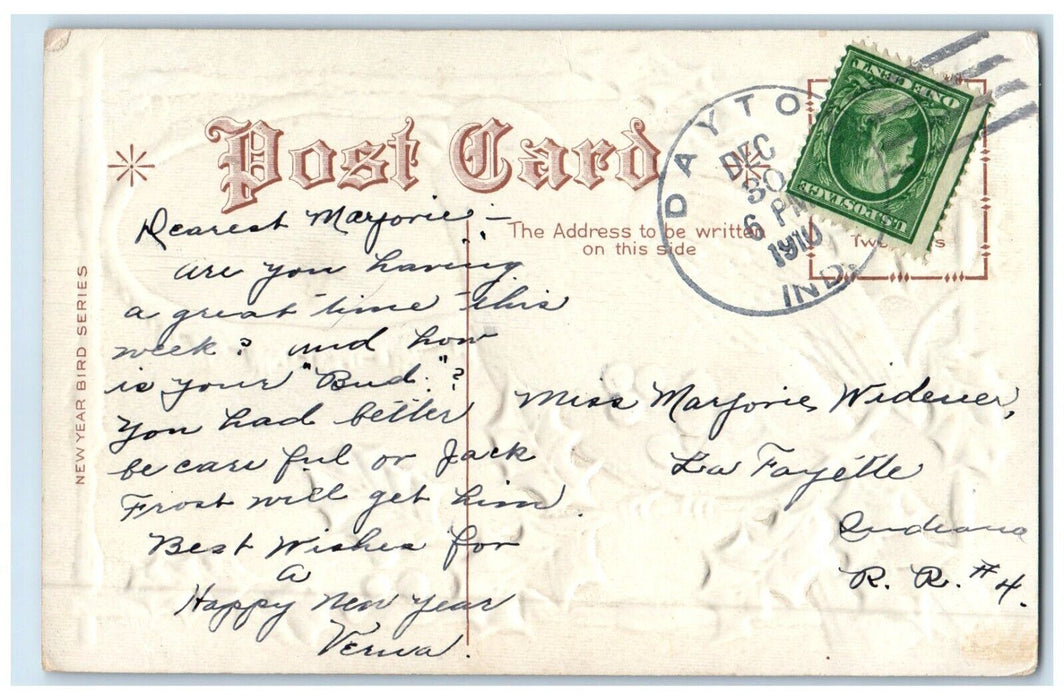 Post Card
NEW YEAR BIRD SERIES
The Address to be written
on this side
DAYTO
IND.
DEC
30
6 PM
1910
ONE CENT
U.S. POSTAGE
Two
Dearest Marjorie:-
are you having
a great time this
week? and how
is your "Bud."?
You had better
be care ful or Jack
Frost will get him.
Best Wishes for
a
Happy New Year
Verna.
Miss Marjorie Widener,
La Fayette
Indiana
R. R. #4.